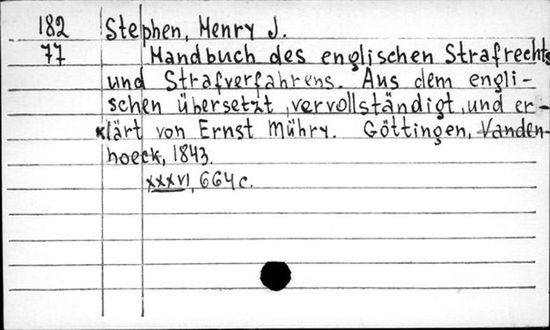 182 Stephen, Henry J.
77 Handbuch des englischen Strafrechts
und Strafverfahrens. Aus dem engli-
schen übersetzt, vervollständigt, und er-
klärt von Ernst Mühry. Göttingen, Vanden-
hoeck, 1843.
XXXVI, 664 c.